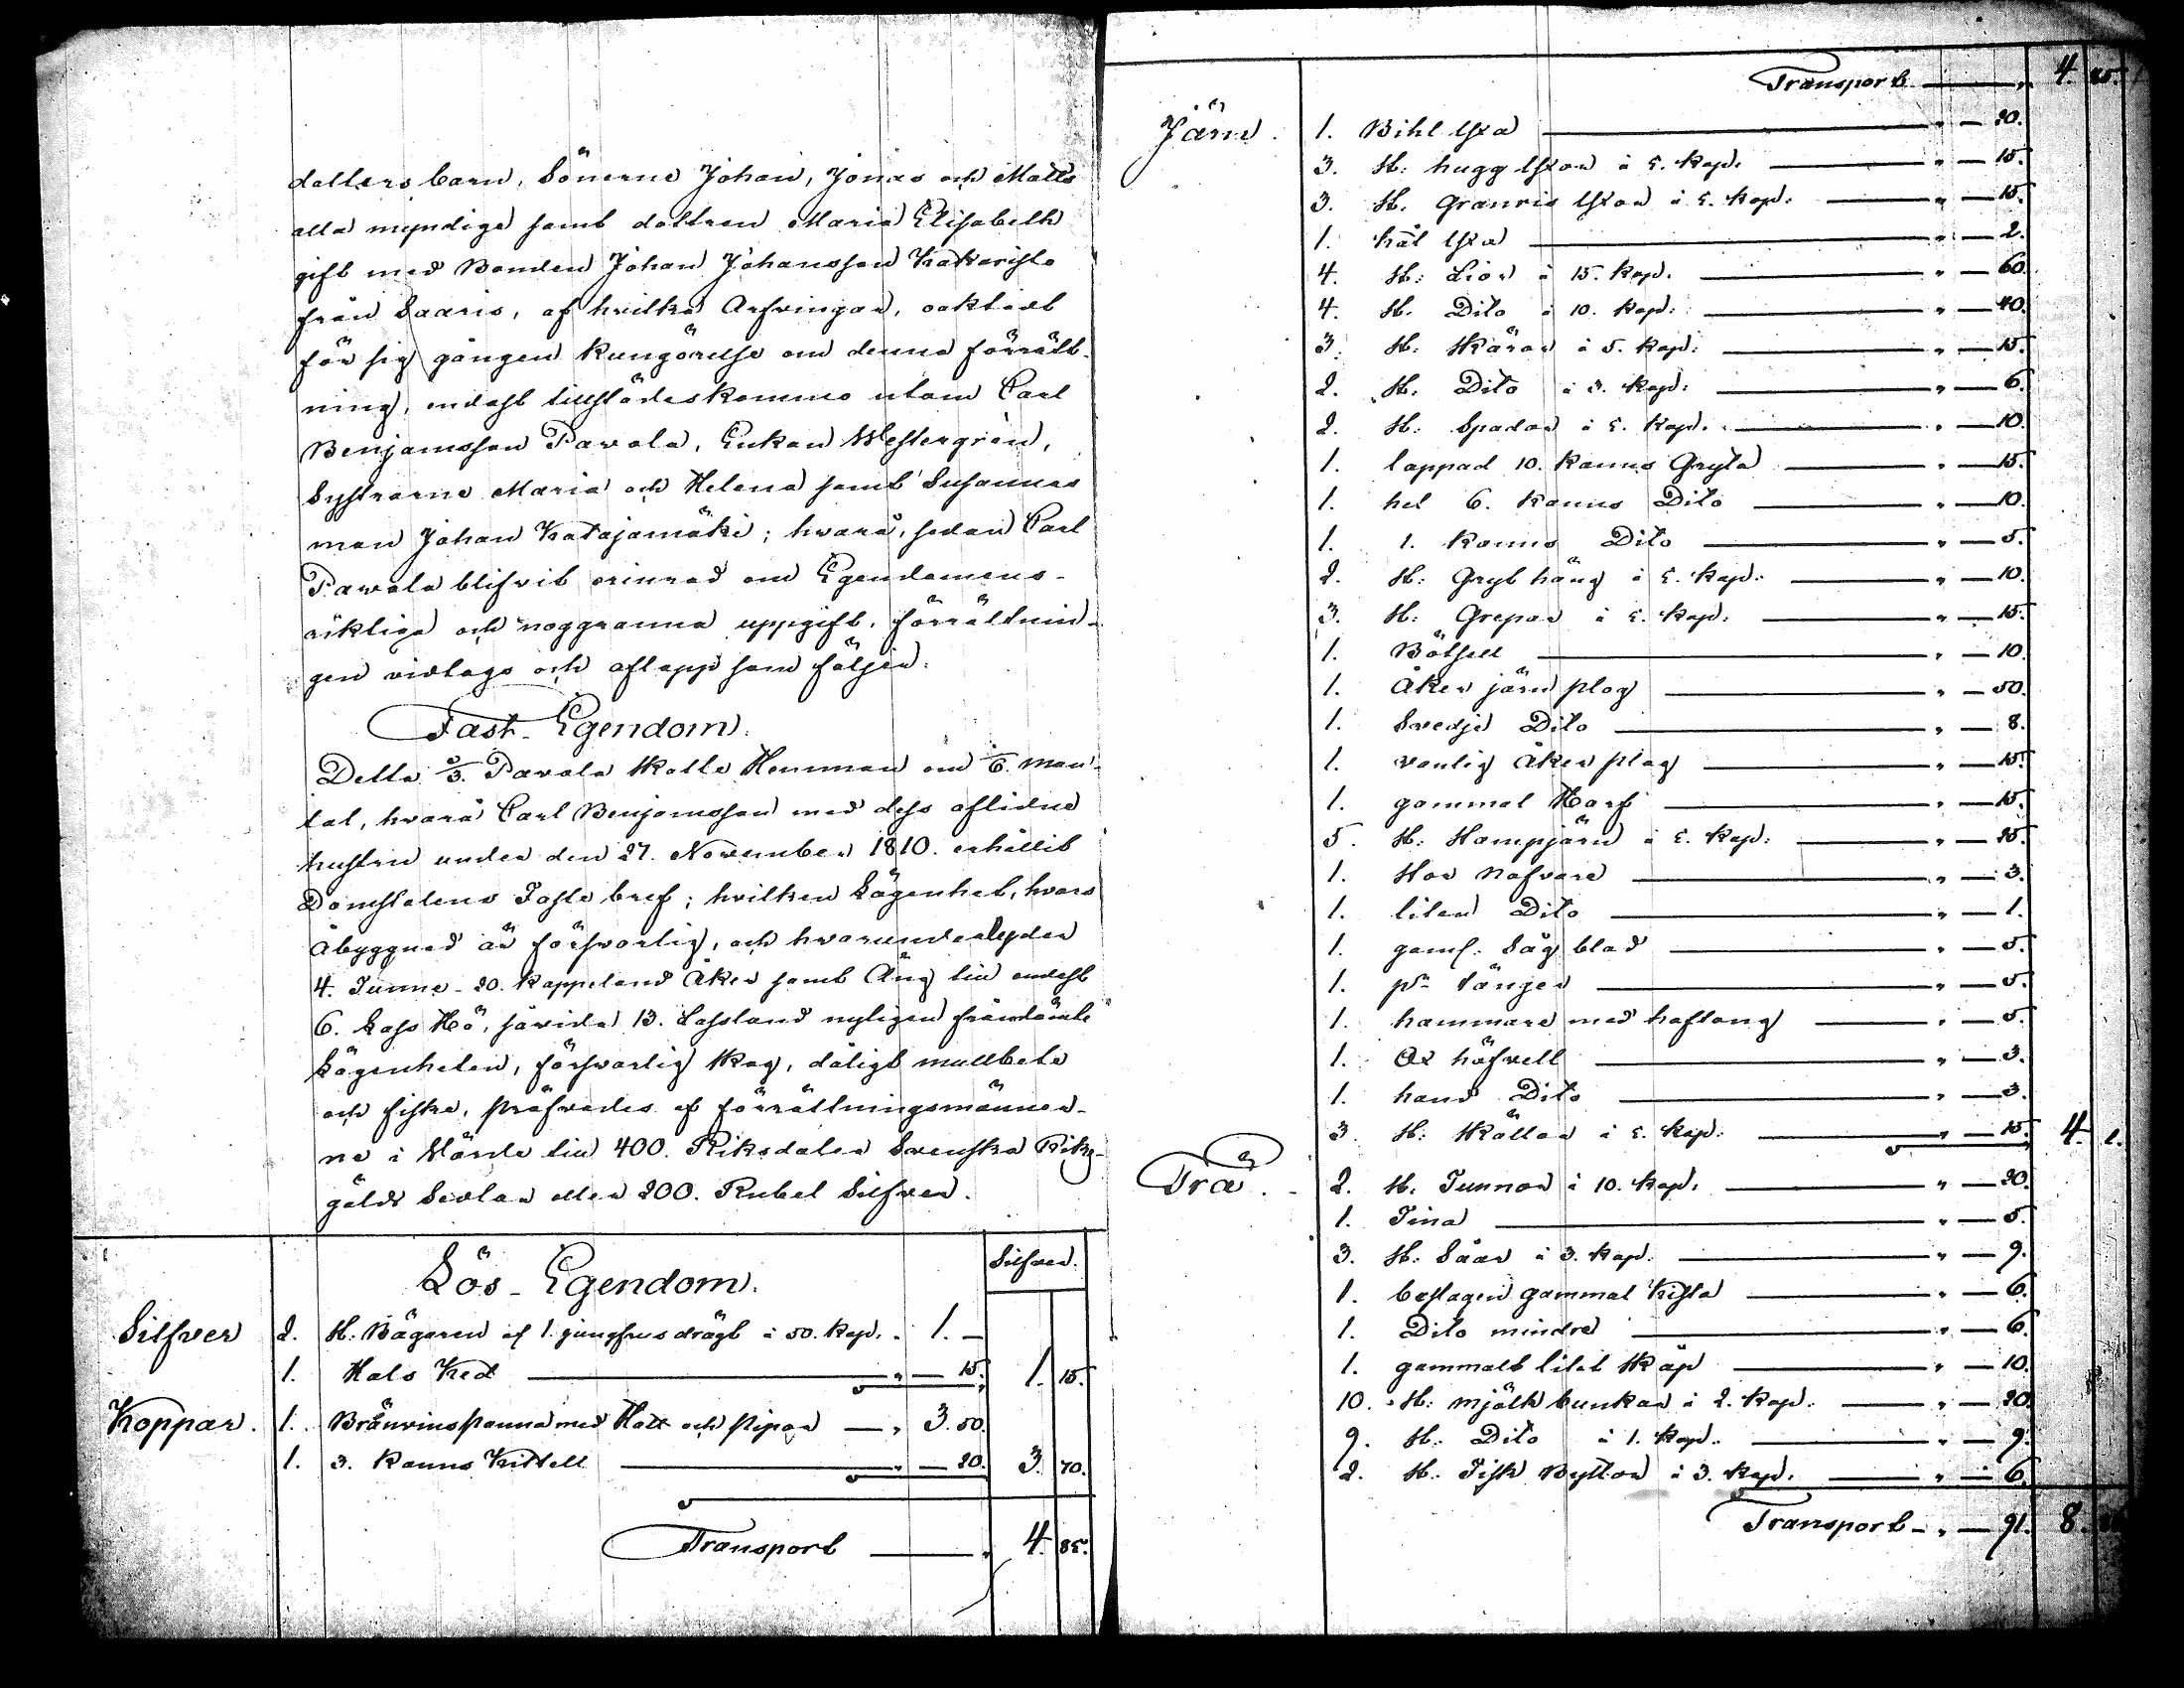 dotters barn, Sönerne Johan, Jonas och Matts
alla myndige samt dottren Maria Elisabeth
gift med Bonden Johan Johansson Katkaristo
från Saaris, af hvilka Arfvingar, oaktadt
för sig gången kungörelse om denna förrätt-
ning, endast tillstädeskommo utom Carl
Benjamsson Pavola, Enkan Westergrén,
Systrarne Maria och Helena samt Susannas
man Johan Katajamäki; hvarå, sedan Carl
Pavola blifvit erinrad om Egendomens
riktiga och noggranna uppgift, förrättnin-
gen vidtogs och aflopp som följer:
Fast Egendom.
Detta 2/3. Pavola Skatte Hemman om 1/6. man-
tal, hvarå Carl Benjamsson med dess aflidne
hustru under den 27. November 1810. erhållit
Domstolens Faste bref; hvilken Lägenhet, hvars
åbyggnad är försvarlig, och hvarunder lyder
4. Tunne - 20. Kappeland Åker samt Äng till endast
6. Lass Hö, såvida 13. Lassland nyligen fråndömts
Lägenheten, försvarlig skog, dåligt mullbete
och fiske, pröfvades af förrättningsmännen-
ne i Värde till 400. Riksdaler Svenska Riks-
gälds Sedlar eller 200. Rubel Silfver.
Lös - Egendom.
Silfver.
Silfver 2. St: Bägaren af 1. jungfrus drägt à 50. kop. " 1. —
1. Hals Ked " — 15. 1. 15.
Koppar. 1. Bränvins panna med Hatt och pipor — " 3. 50.
1. 3. kanns Kittell " — 20. 3. 70.
Transport " 4. 85.
Transport " 4. 85.
Järn. 1. Bihl Yxa " — 20.
3. St: hugg Yxor à 5. kop. " — 15.
3. St. Granris Yxor à 5. kop. " — 15.
1. hål Yxa " — 2.
4. St: Liar à 15. kop. " — 60.
4. St. Dito à 10. kop: " — 40.
3. St: Skäror à 5. kop: " — 15.
2. St. Dito à 3. kop: " — 6.
2. St: Spadar à 5. kop. " — 10.
1. lappad 10. kanns Gryta " — 15.
1. hel 6. kanns Dito " — 10.
1. 1. kanns Dito " — 5.
2. St: Gryt häng à 5. kop: " — 10.
3. St: Grepar à 5. kop. " — 15.
1. " — 10.
1. Åker järn plog " — 50.
1. Svedje Dito " — 8.
1. vanlig Åker plog " — 15.
1. gammal Harf " — 15.
5. St: Stampjärn à 5. kop: " — 25.
1. Stor Nafvare " — 3.
1. liten Dito " — 1.
1. gaml. Såg blad " — 5.
1. pr tänger " — 5.
1. hammare med hoftång " — 5.
1. Ox höfvell " — 3.
1. hand Dito " — 3.
3. St: Skällor à 5. kop: " — 15. 4. 1.
Trä. 2. St. Tunnor à 10. kop. " — 20.
1. Tina " — 5.
3. St: Såar à 3. kop. " — 9.
1. beslagen gammal Kista " — 6.
1. Dito mindre " — 6.
1. gammalt litet Skåp " — 10.
10. St: mjölk bunkar à 2. kop. " — 20.
9. St: Dito à 1. kop. " — 9.
2. St: Fisk Byttor à 3. kop. " — 6.
Transport " — 91. 8.